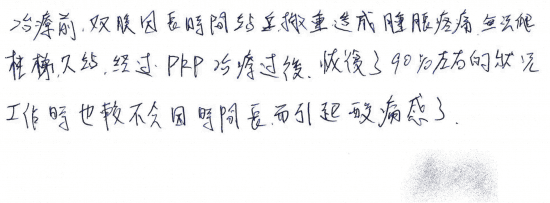 治療前,双膝因長時間站立搬重造成腫脹疼痛無法爬
樓梯,久站,經过PRP治療过後,恢復了90%左右的狀況
工作時也較不会因時間長而引起酸痛感了.